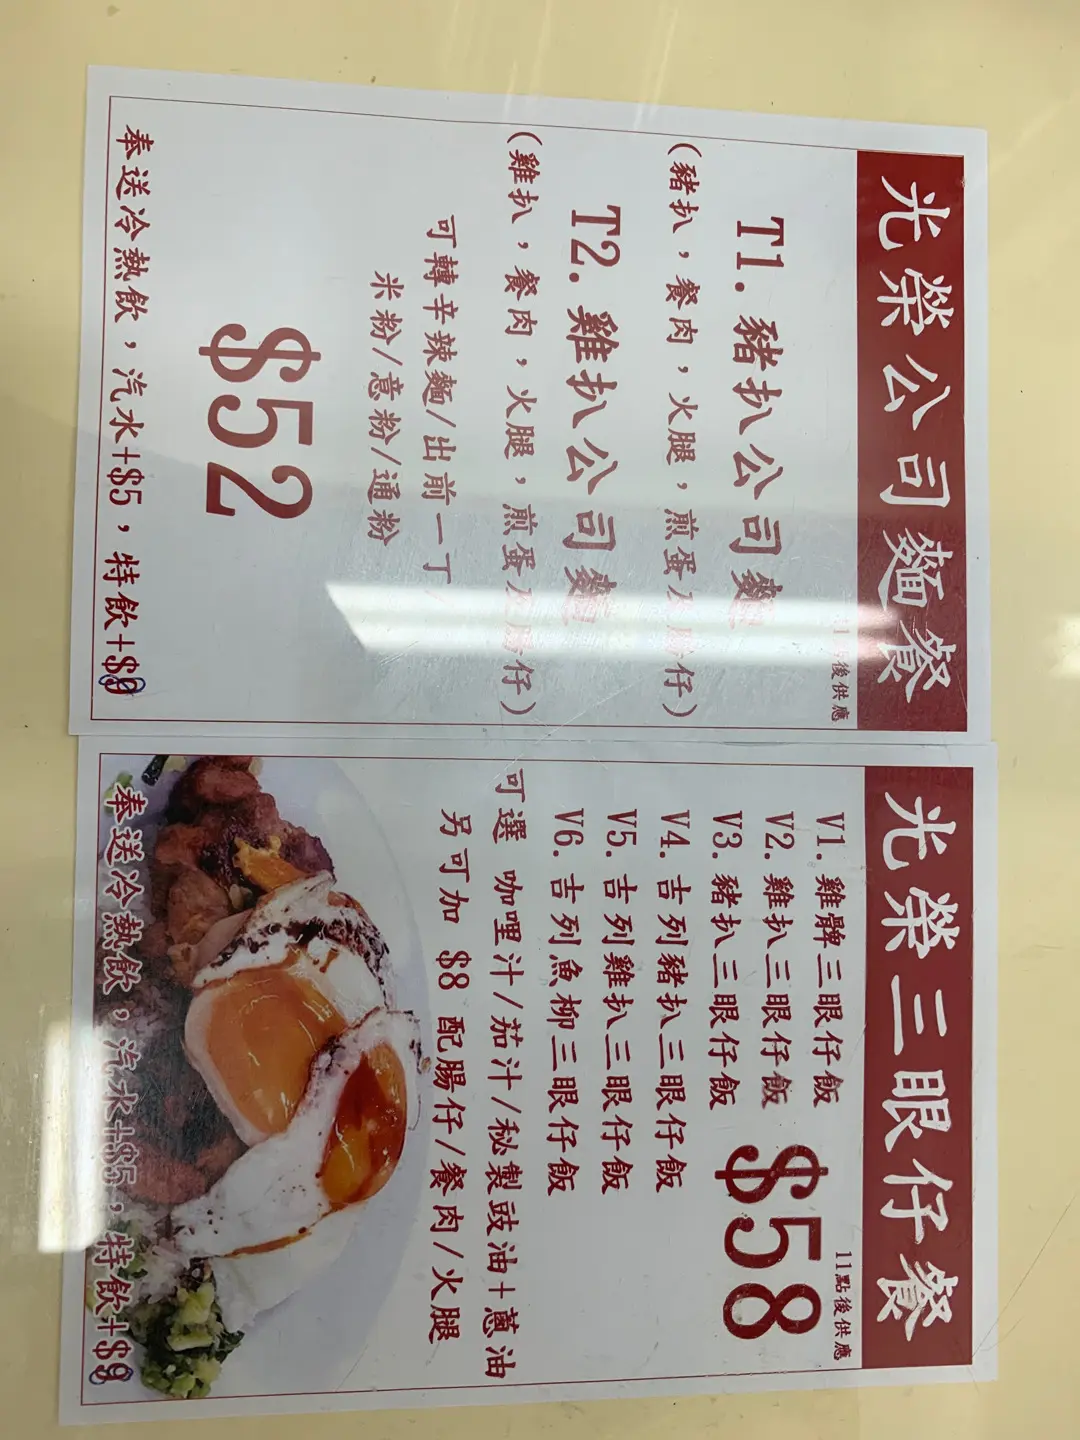 光榮公司麵餐
11點後供應
T1. 豬扒公司麵
(豬扒，餐肉，火腿，煎蛋及腸仔)
T2. 雞扒公司麵
(雞扒，餐肉，火腿，煎蛋及腸仔)
可轉辛辣麵/出前一丁/
米粉/意粉/通粉
$52
奉送冷熱飲，汽水+$5，特飲+$9
光榮三眼仔餐
11點後供應
V1. 雞髀三眼仔飯
V2. 雞扒三眼仔飯
V3. 豬扒三眼仔飯
$58
V4. 吉列豬扒三眼仔飯
V5. 吉列雞扒三眼仔飯
V6. 吉列魚柳三眼仔飯
可選 咖哩汁/茄汁/秘製豉油+蔥油
另可加 $8 配腸仔/餐肉/火腿
奉送冷熱飲，汽水+$5，特飲+$9